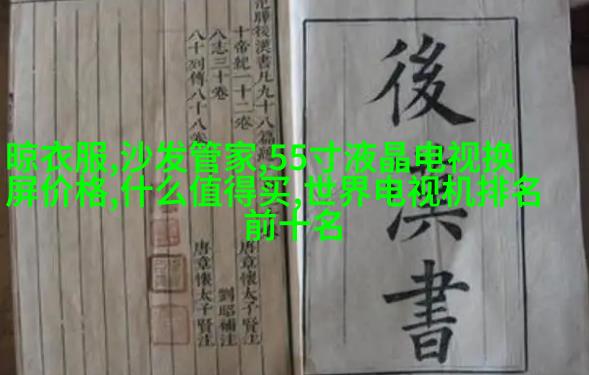 晾衣服,沙发管家,55寸液晶电视换
屏价格,什么值得买,世界电视机排名
前十名
後漢書
後漢書凡九十八篇
十帝紀一十二卷
唐章懷太子賢注
八志三十卷
劉昭補注
八十列傳八十八卷
唐章懷太子賢注